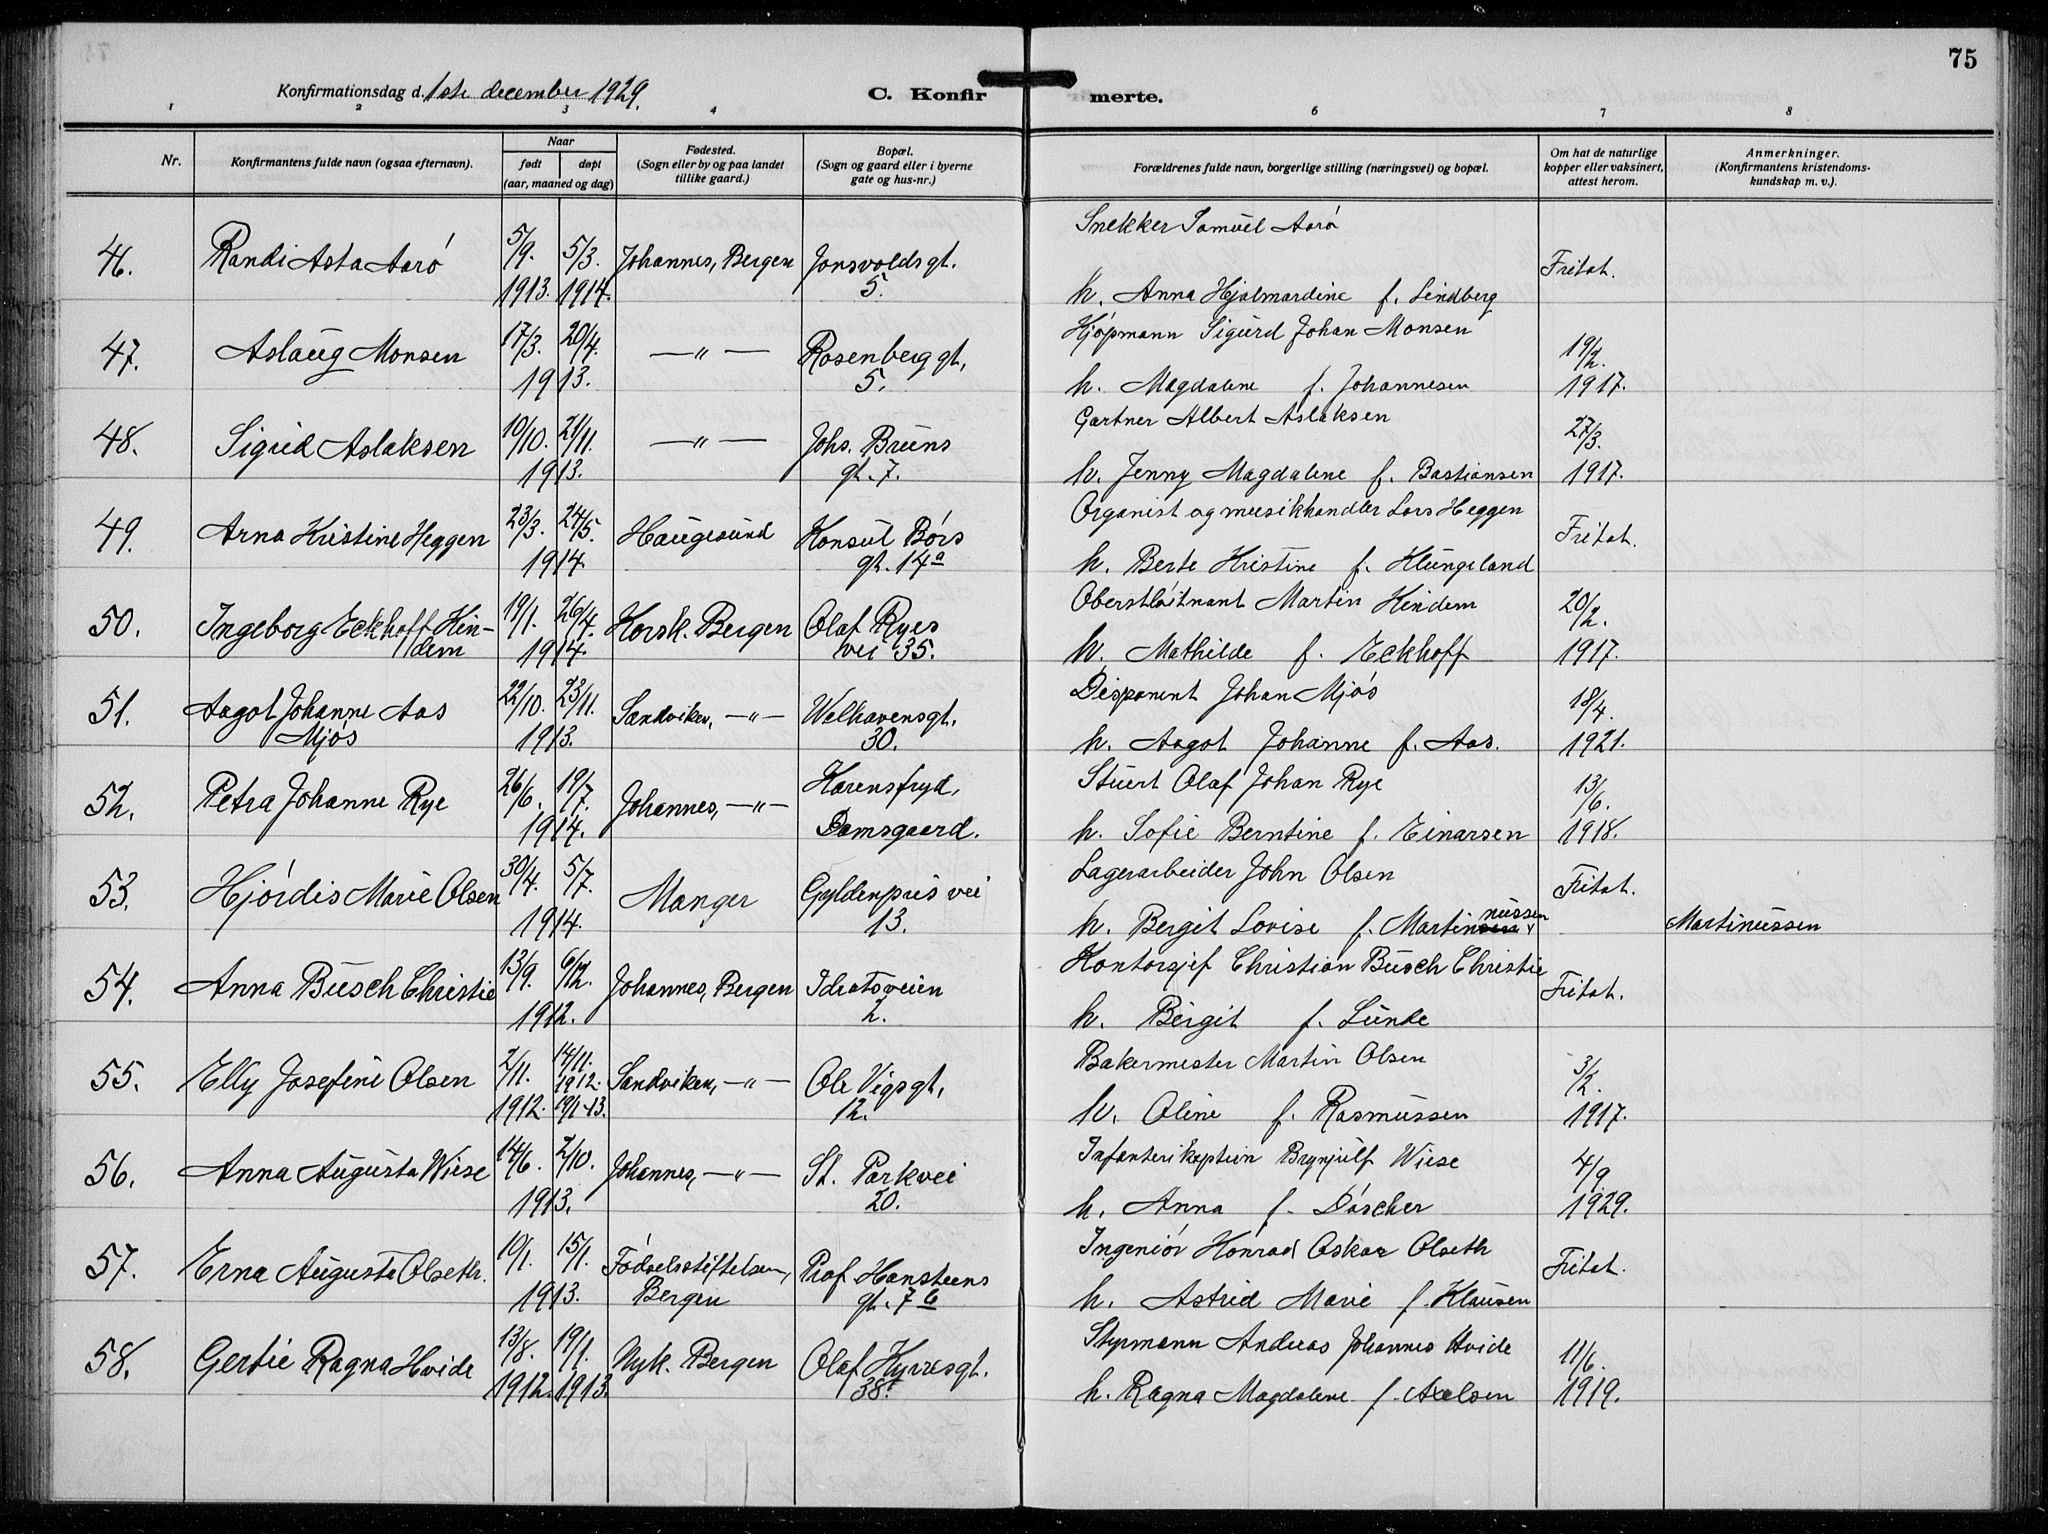 75
Konfirmationsdag d. 1ste december 1929.
C. Konfir merte.
1 2 3 4 6 7 8
Nr.
Konfirmantens fulde navn (ogsaa efternavn).
Naar
født døpt
(aar, maaned og dag)
Fødested.
(Sogn eller by og paa landet
tillike gaard.)
Bopæl.
(Sogn og gaard eller i byerne
gate og hus-nr.)
Forældrenes fulde navn, borgerlige stilling (næringsvei) og bopæl.
Om hat de naturlige
kopper eller vaksinert,
attest herom.
Anmerkninger.
(Konfirmantens kristendoms-
kundskap m. v.).
Snekker Samuel Aarø
46. Randi Asta Aarø 5/9. 5/3. Johannes, Bergen Jonsvoldsgt. Fritat.
1913. 1914. 5. h. Anna Hjalmardine f. Lindberg
47. Aslaug Monsen 17/3. 20/4. —〃— Rosenberggt. Kjøpmann Sigurd Johan Monsen 19/2.
1913. 5. h. Magdalene f. Johannesen 1917.
48. Sigrid Aslaksen 10/10. 21/11. —〃— Johs. Bruns Gartner Albert Aslaksen 27/3.
1913. gt. 7. h. Jenny Magdalene f. Bastiansen 1917.
49. Arna Kristine Heggen 23/3. 24/5. Haugesund Konsul Børs Organist og musikhandler Lars Heggen Fritat.
1914. gt. 14a h. Berte Kristine f. Klungeland
50. Ingeborg Eckhoff Hin- 19/1. 26/4. Korsk. Bergen Olaf Ryes Oberstløitnant Martin Hindem 20/2.
dem 1914. vei 35. h. Mathilde f. Eckhoff 1917.
51. Aagot Johanne Aas 22/10. 23/11. Sandviken, —〃— Welhavensgt. Disponent Johan Mjøs 18/4.
Mjøs 1913. 30. h. Aagot Johanne f. Aas. 1921.
52. Petra Johanne Rye 26/6. 19/7. Johannes, —〃— Karensfryd, Stuert Olaf Johan Rye 13/6.
1914. Damsgaard. h. Sofie Berntine f. Einarsen 1918.
53. Hjørdis Marie Olsen 30/4. 5/7. Manger Gyldenpris vei Lagerarbeider John Olsen Fritat.
1914. 13. h. Bergit Lovise f. Martinsen nussen Martinussen
54. Anna Busch Christie 13/9. 6/12. Johannes, Bergen Idrætsveien Kontorsjef Christian Busch Christie Fritat.
1912. 2. h. Birgit f. Lunde
55. Elly Josefine Olsen 2/11. 14/11. 1912. Sandviken, —〃— Ole Vigsgt. Bakermester Martin Olsen 3/2.
1912. 19/1-13. 12. h. Oline f. Rasmussen 1917.
56. Anna Augusta Wiese 14/6. 2/10. Johannes, —〃— St. Parkvei Infanterikaptein Brynjulf Wiese 4/9
1913. 20. h. Anna f. Döscher 1929.
57. Erna Augusta Olseth. 10/1. 15/1. Fødselsstiftelsen, Prof. Hansteens Ingeniør Konrad Oskar Olseth Fritat.
1913. Bergen gt. 7b h. Astrid Marie f. Klausen
58. Gertie Ragna Hvide 13/8. 19/1. Nyk. Bergen Olaf Kyrresgt. Styrmann Andreas Johannes Hvide 11/6.
1912. 1913. 38. h. Ragna Magdalene f. Axelsen 1919.